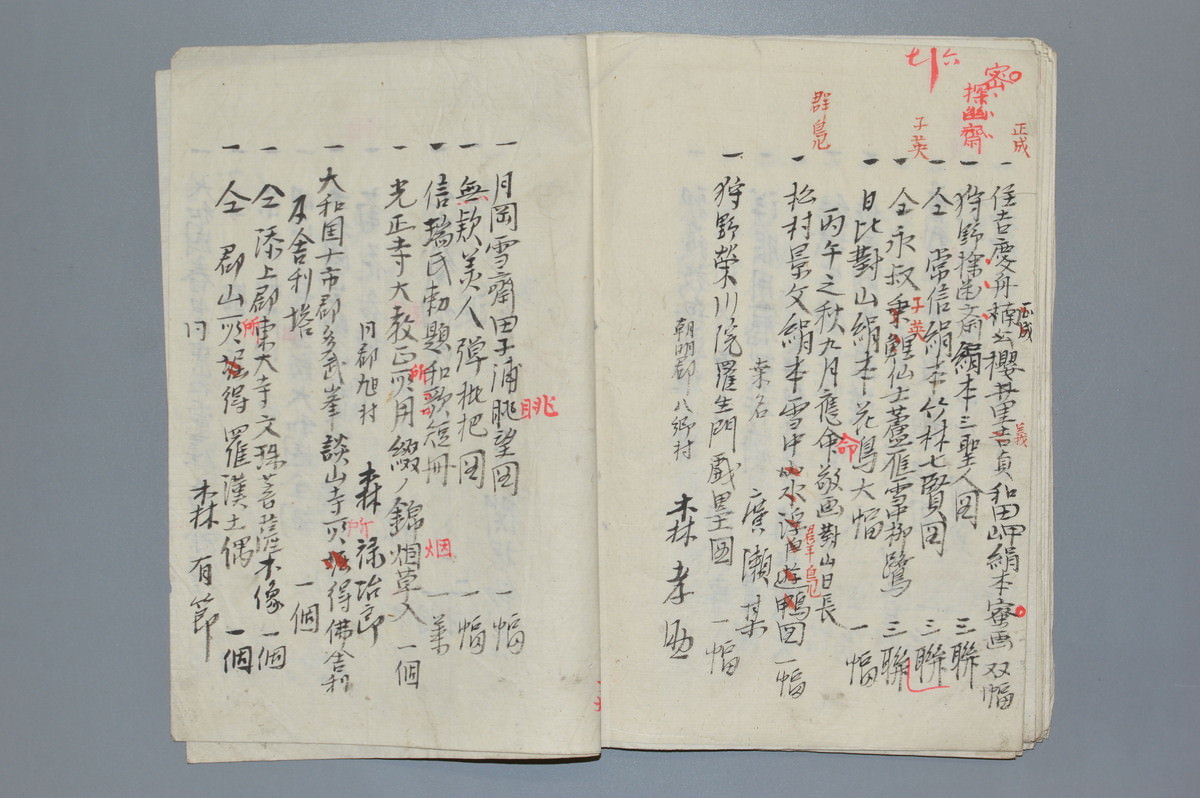 六
密
探幽齋
正成
一 住吉慶舟楠公櫻井里 貞和田岬絹本密画 双幅
正成
義
一 狩野探幽斎絹本三聖人図 三聯
一 仝 常信絹本竹林七賢図 三聯
子英
一 仝永叔乗鯉仙士蘆雁雪中柳鷺 三聯
子英
一 日比對山絹本花鳥大幅 一幅
丙午之秋九月應命敬画對山日長
命
群鳧
一 松村景文絹本雪中 図 一幅
群鳧
桑名 廣瀬某
一 狩野榮川院羅生門戯墨図 一幅
朝明郡八郷村 森孝助
一 月岡雪齋田子浦眺望図 一幅
眺
一 無款美人弾枇把図 一幅
一 信瑞氏勅題和歌短冊 一葉
一 光正寺大教正 用綴ノ錦烟草入 一個
所
烟
同郡旭村 森禄治郎
一 大和国十市郡多武峯談山寺 得佛舎利
所
及舎利塔 一個
一 仝添上郡東大寺文珠菩薩木像 一個
一 仝 郡山 得羅漢土偶 一個
所
同 森有節